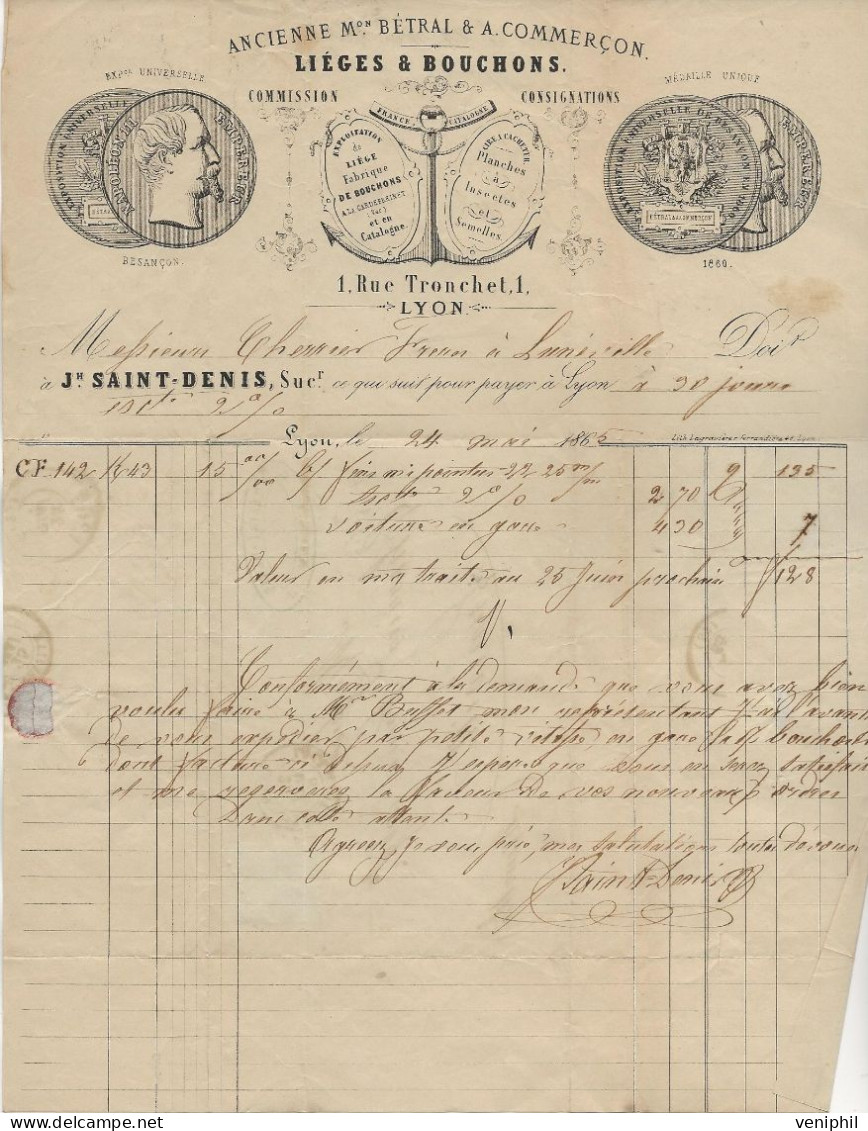 ANCIENNE Mon BÉTRAL & A. COMMERÇON.
LIÉGES & BOUCHONS.
EXPon UNIVERSELLE
MÉDAILLE UNIQUE
COMMISSION
CONSIGNATIONS
FRANCE CATALOGNE
EXPLOITATION
de
LIÈGE
Fabrique
DE BOUCHONS
(Var)
et en
Catalogne
CIRE A CACHETER
Planches
à
Insectes
et
Semelles.
EXPOSITION UNIVERSELLE
NAPOLEON III EMPEREUR
EXPOSITION UNIVERSELLE DE BESANÇON EN 1860
BÉTRAL & A. COMMERÇON
EMPEREUR
BESANÇON.
1860.
1, Rue Tronchet, 1,
LYON.
Messieurs Cherrier Freres à Lunéville Doit
à JH SAINT-DENIS, Sucr ce qui suit pour payer à Lyon à 30 jours
escte 2 %
Lyon, le 24 mai 1865
CF 142 K 43 15 00/00 b/ fins mi pointus 22 25 m/m 9 135
escte 2 % 2 70
voiture en gare 4 30 7
Valeur en ma traite au 25 Juin prochain 128
Conformément à la demande que vous avez bien
voulu faire à Mr Buffet mon représentant J'ai l'avant
de vous expédier par petite vitesse en gare bouchons
dont facture ci dessus J'espère que vous en serez satisfait
et me réserverez la faveur de vos nouveaux ordres
Dans cette attente
Agréez, je vous prie, mes salutations toutes dévouées
J Saint-Denis
veniphil